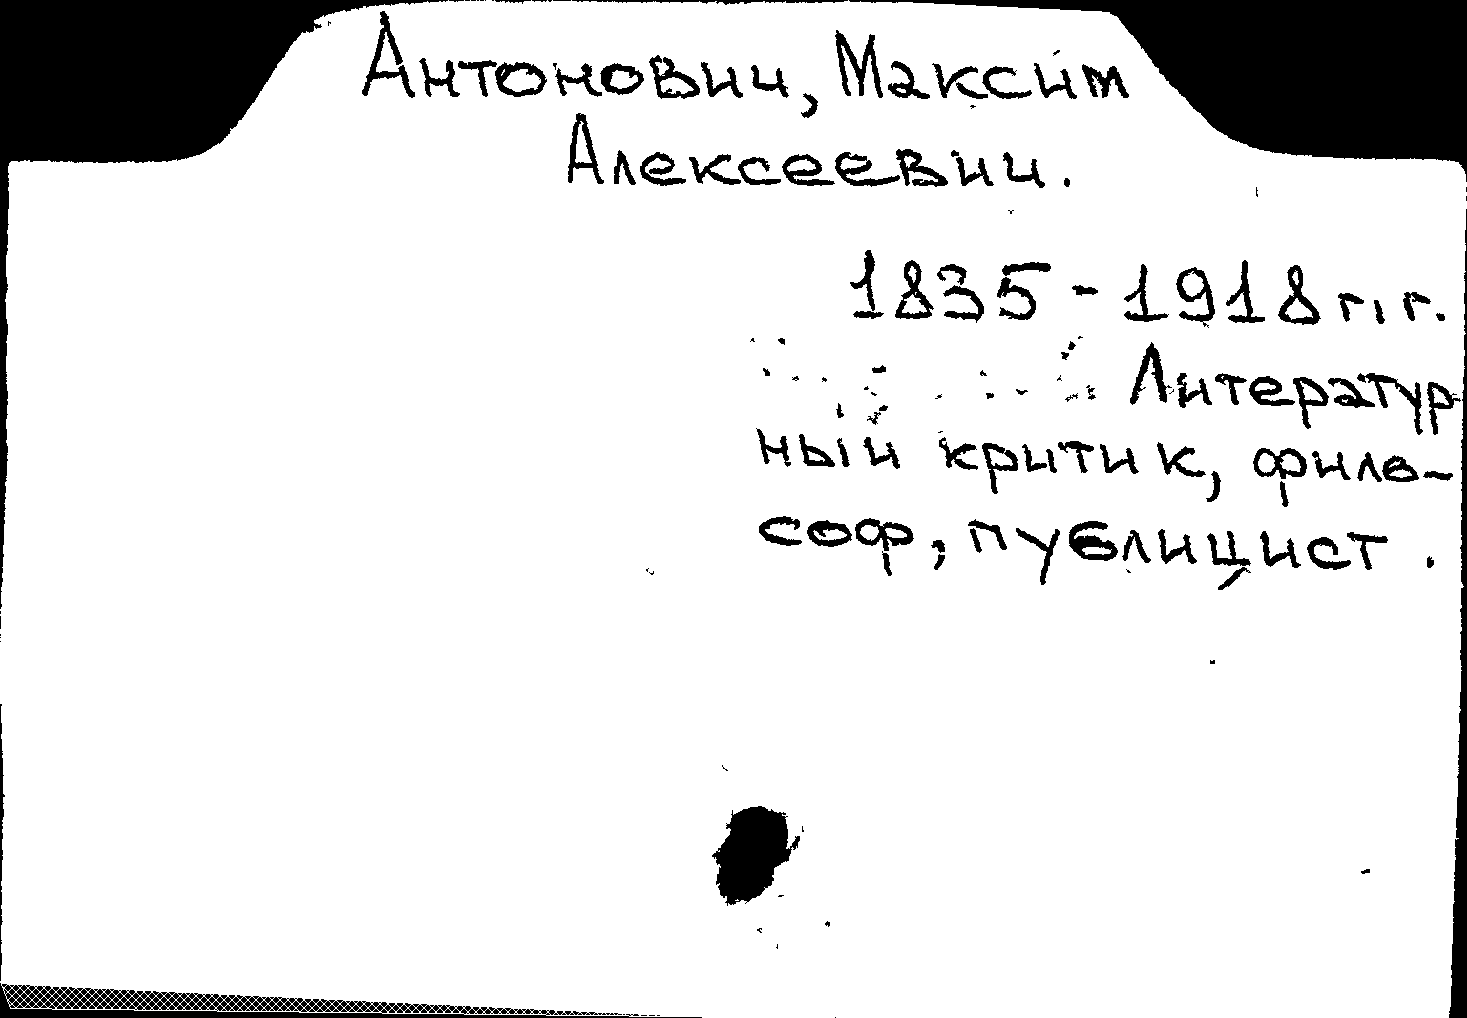 Антонович, Максим
Алексеевич.
1835-1918 г.г.
Литератур-
ный критик, фило-
соф, публицист.